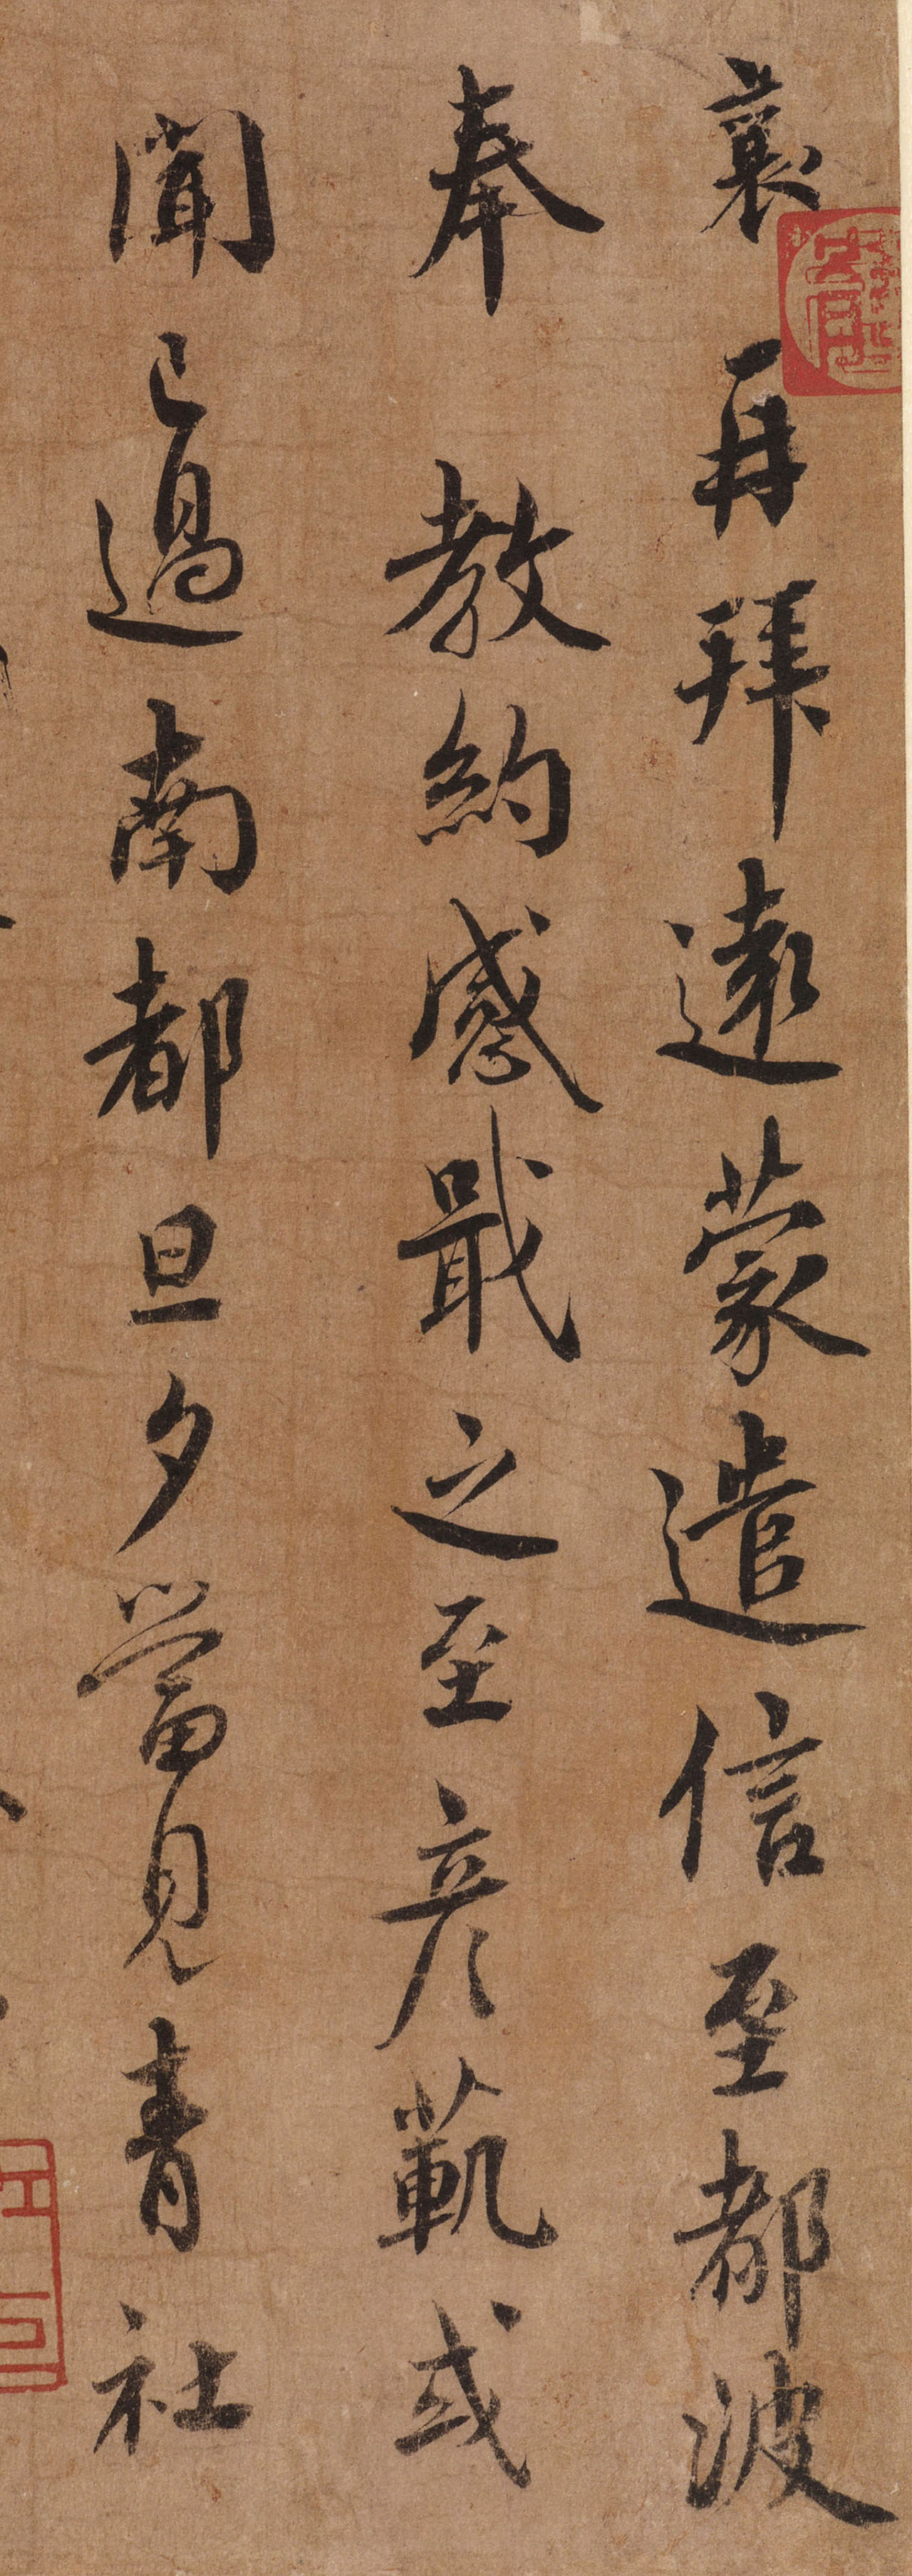 襄再拜遠蒙遣信至都波
奉教約感戢之至彥範或
聞已過南都旦夕當見青
社